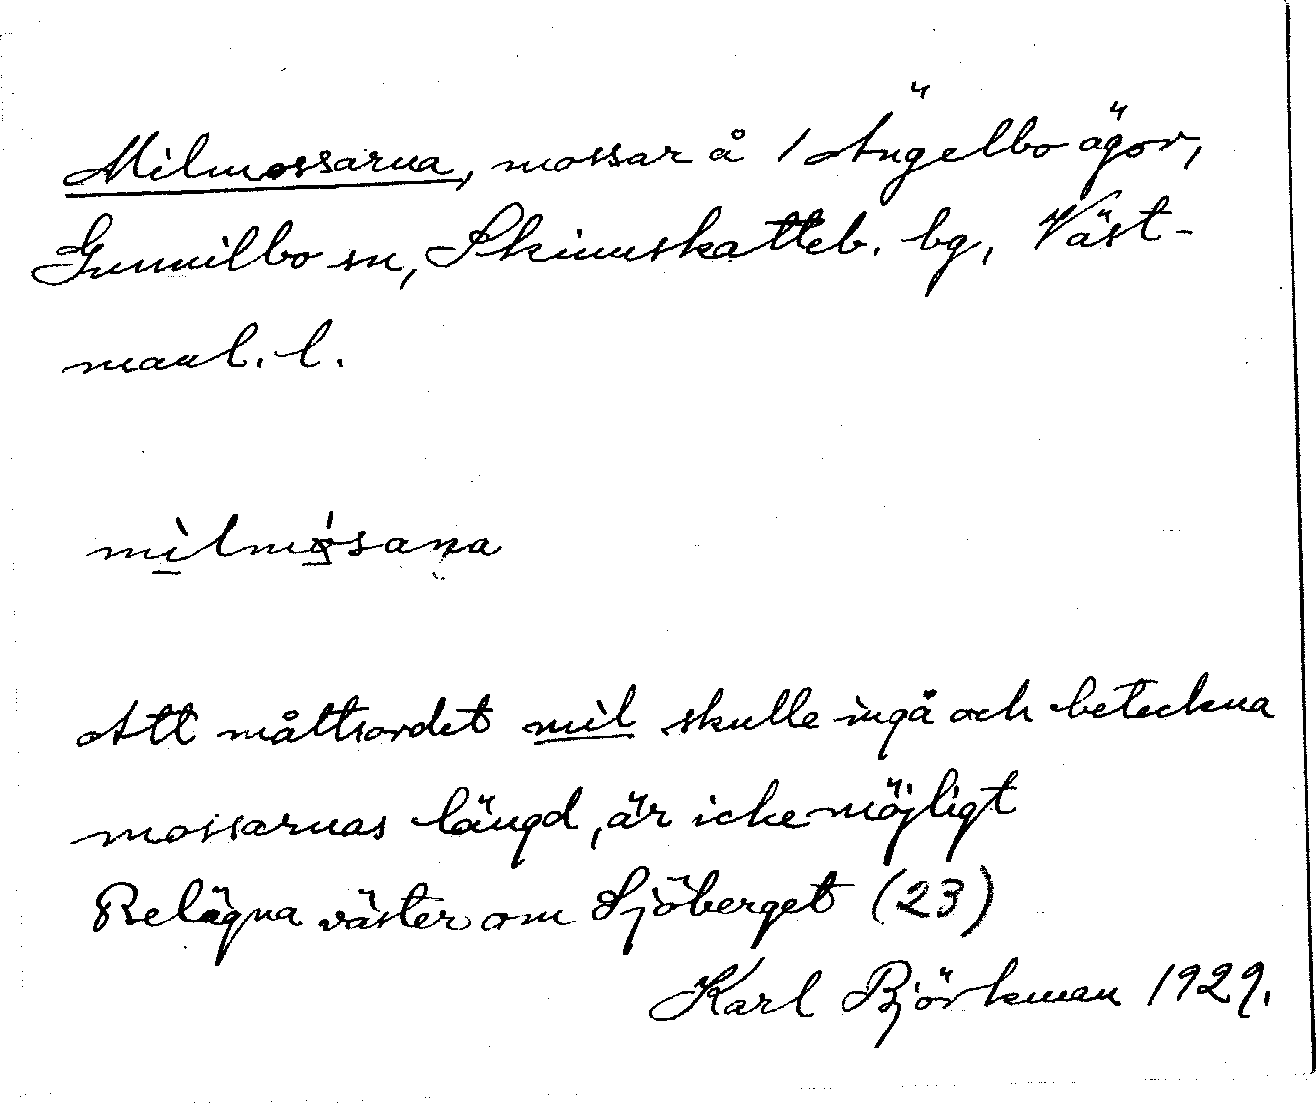 Milmossarna, mossar å / Ängelbo ägor,
Gunnilbo sn, Skinnskatteb. bg, Väst-
manl. l.
mìlmósana
Att måttsordet mil skulle ingå och beteckna
mossarnas längd, är icke möjligt
Belägna väster om Sjöberget (23)
Karl Björkman 1929.